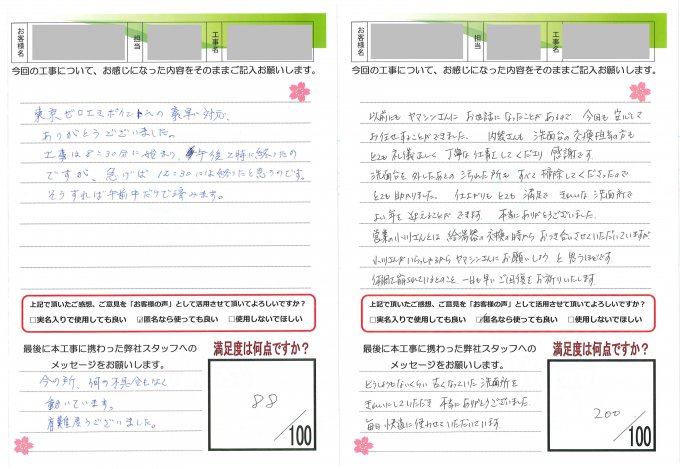 お客様名
担当
工事名
今回の工事について、お感じになった内容をそのままご記入お願いします。
東京ゼロエミポイントへの素早い対応、
ありがとうございました。
工事は8:30分に始まり、午後2時に終ったの
ですが、急げば12:30には終ったと思うのです。
そうすれば午前中だけで済みます。
上記で頂いたご感想、ご意見を「お客様の声」として活用させて頂いてよろしいですか?
□実名入りで使用しても良い ☑匿名なら使っても良い □使用しないでほしい
最後に本工事に携わった弊社スタッフへの
メッセージをお願いします。
今の所、何の不具合もなく
動いています。
有難うございました。
満足度は何点ですか?
88
/100
お客様名
担当
工事名
今回の工事について、お感じになった内容をそのままご記入お願いします。
以前にも ヤマシンさんに お世話になったことがあるので 今回も 安心して
お任せすることができました。 内装さんも 洗面台の交換担当の方も
とても 礼儀正しく 丁寧な仕事をしてくださり 感謝です
洗面台を外したあとの 汚れた所も すべて 掃除してくださったので
とても助かりました。 仕上がりも とても 満足で きれいな 洗面所で
よい年を 迎えることが できます 本当にありがとうございました。
営業の小川さんとは 給湯器の交換の時から お付き合いさせていただいていますが
小川さんがいらっしゃるから ヤマシンさんに お願いしよう と 思うほどです
体調を崩されているとのこと 一日も早い ご回復を お祈りいたします
上記で頂いたご感想、ご意見を「お客様の声」として活用させて頂いてよろしいですか?
□実名入りで使用しても良い ☑匿名なら使っても良い □使用しないでほしい
最後に本工事に携わった弊社スタッフへの
メッセージをお願いします。
どうしようもないくらい 古くなっていた 洗面所を
きれいにしていただき 本当に ありがとうございました
毎日 快適に 使わせていただいています
満足度は何点ですか?
200
/100